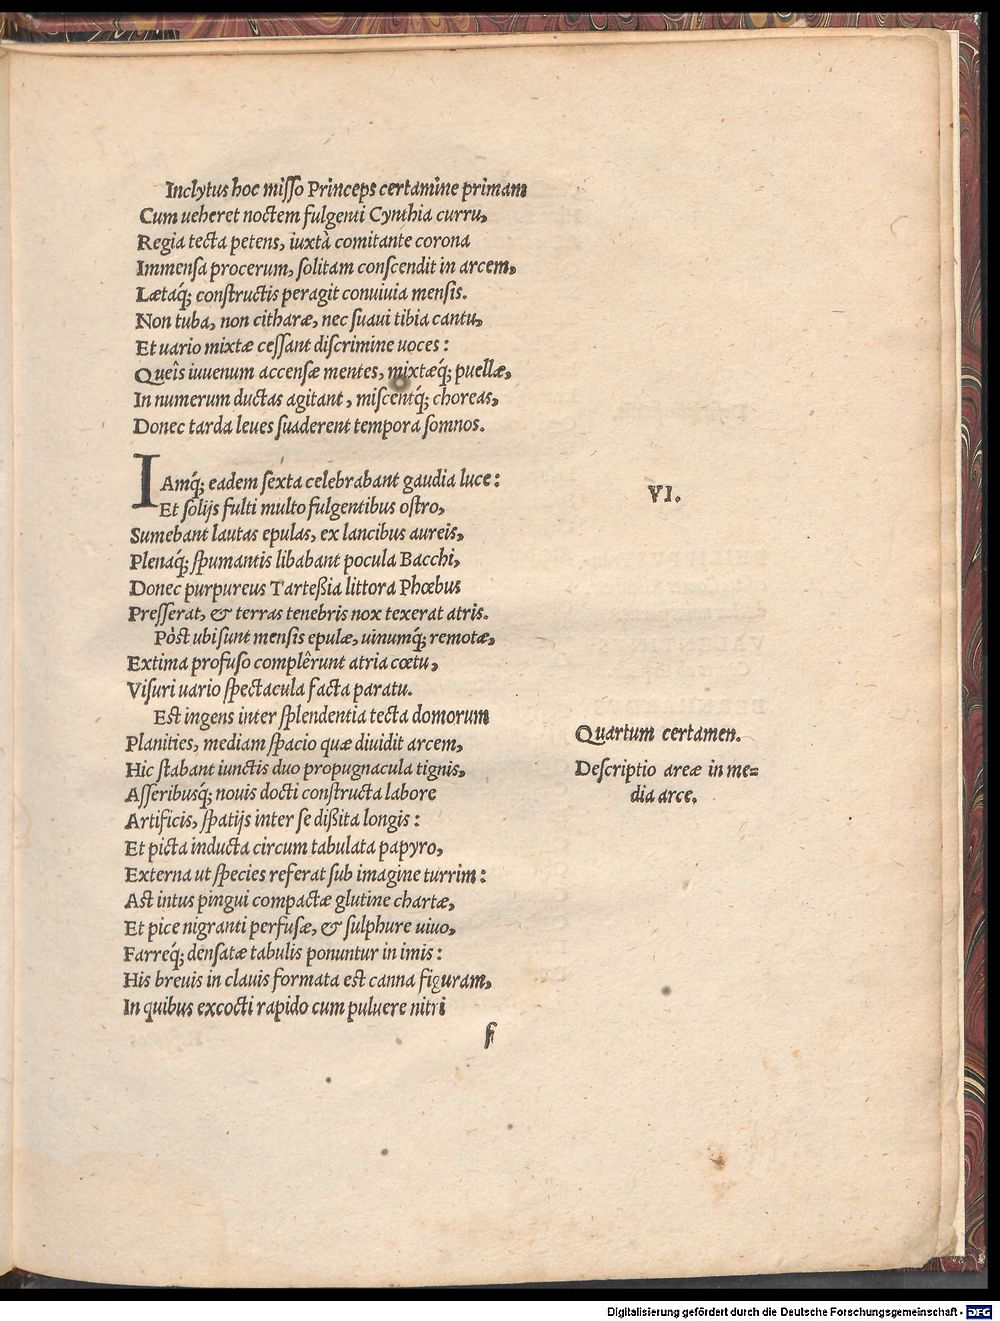 Inclytus hoc misso Princeps certamine primam
Cum ueheret noctem fulgenti Cynthia curru,
Regia tecta petens, iuxtà comitante corona
Immensa procerum, solitam conscendit in arcem,
Lætaq́; constructis peragit conuiuia mensis.
Non tuba, non citharæ, nec suaui tibia cantu,
Et uario mixtæ cessant discrimine uoces:
Queîs iuuenum accensæ mentes, mixtæq́; puellæ,
In numerum ductas agitant, miscentq́; choreas,
Donec tarda leues suaderent tempora somnos.
IAmq́; eadem sexta celebrabant gaudia luce:
VI.
Et solijs fulti multo fulgentibus ostro,
Sumebant lautas epulas, ex lancibus aureis,
Plenaq́; spumantis libabant pocula Bacchi,
Donec purpureus Tarteßia littora Phœbus
Presserat, & terras tenebris nox texerat atris.
Pòst ubi sunt mensis epulæ, uinumq́; remotæ,
Extima profuso complêrunt atria cœtu,
Visuri uario spectacula facta paratu.
Est ingens inter splendentia tecta domorum
Quartum certamen.
Planities, mediam spacio quæ diuidit arcem,
Descriptio areæ in me=
dia arce.
Hic stabant iunctis duo propugnacula tignis,
Asseribusq́; nouis docti constructa labore
Artificis, spatijs inter se dißita longis:
Et picta inducta circum tabulata papyro,
Externa ut species referat sub imagine turrim:
Ast intus pingui compactæ glutine chartæ,
Et pice nigranti perfusæ, & sulphure uiuo,
Farreq́; densatæ tabulis ponuntur in imis:
His breuis in clauis formata est canna figuram,
In quibus excocti rapido cum puluere nitri
f
Digitalisierung gefördert durch die Deutsche Forschungsgemeinschaft - DFG